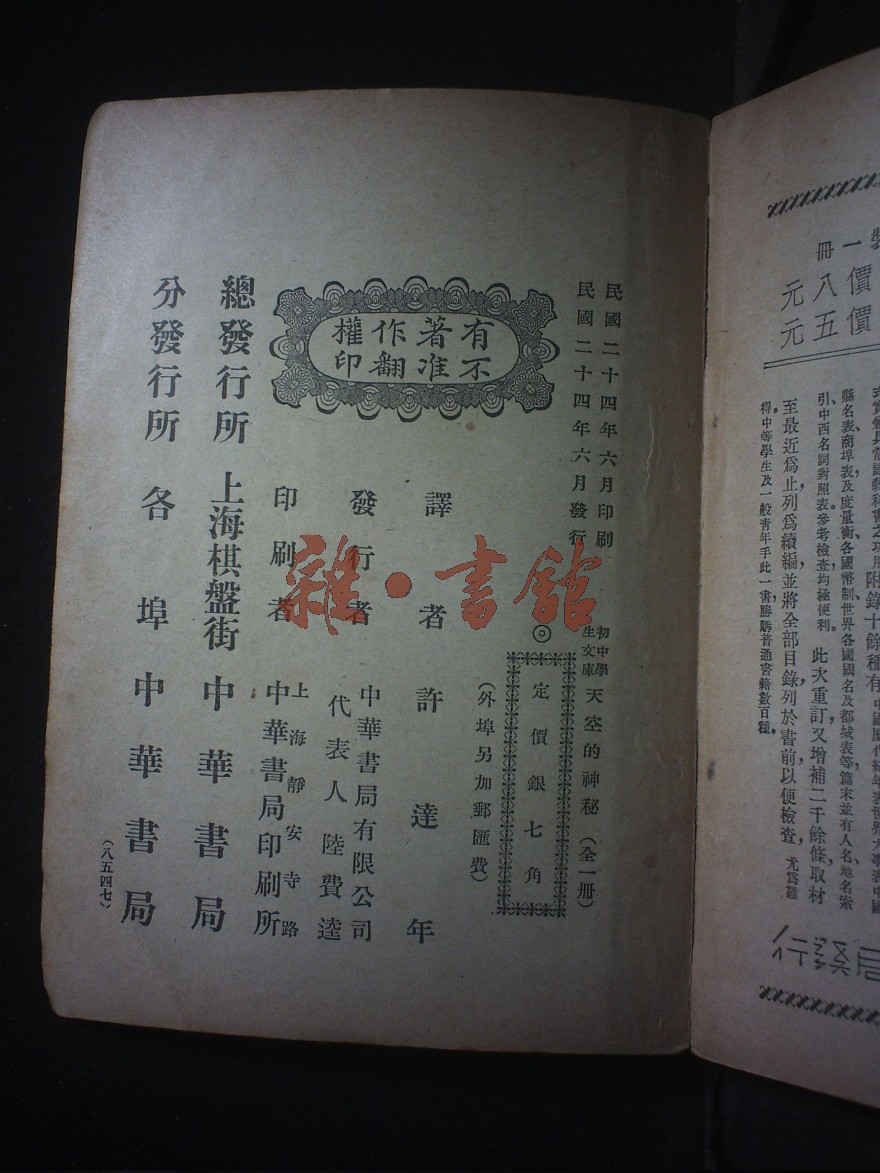 民國二十四年六月印刷
民國二十四年六月發行
初中學生文庫
天空的神秘(全一冊)
◎
定價銀七角
(外埠另加郵匯費)
有著作權
不准翻印
譯者 許達年
發行者 中華書局有限公司
代表人 陸費逵
印刷者 上海靜安寺路
中華書局印刷所
總發行所 上海棋盤街 中華書局
分發行所 各埠 中華書局
(八五四七)
雜·書館
裝一冊
價八元
價五元
附錄十餘種有
縣名表、商埠表及度量衡、各國幣制、世界各國國名及都城表等、篇末並有人名地名索
引、中西名詞對照表、參考檢查均極便利。此次重訂又增補二千餘條、取材
至最近爲止、列爲續編、並將全部目錄列於書前以便檢查、尤爲難
得。中等學生及一般青年手此一書、勝購普通書籍數百種。
局發行